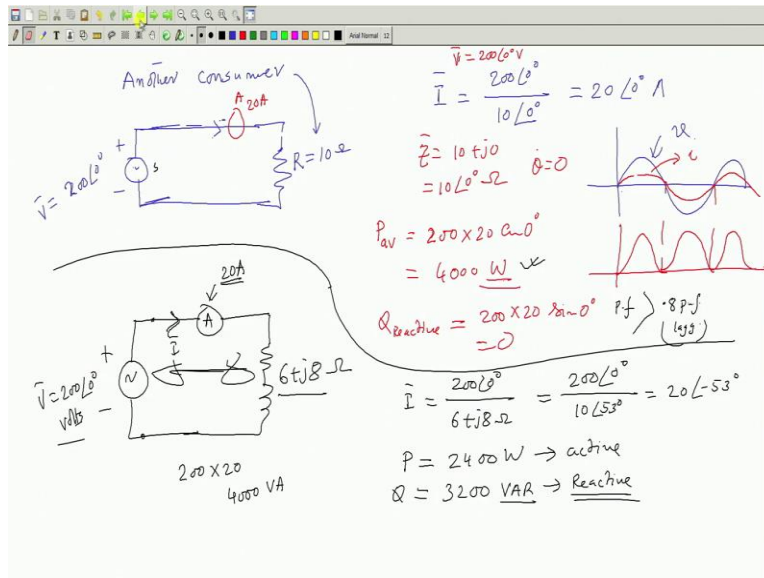 Arial Normal 12
Another consumer
A
20A
+
s
-
V̄ = 200∠0°
R = 10Ω
V̄ = 200∠0° V
Ī = 200∠0° / 10∠0° = 20∠0° A
Z̄ = 10 + j0
= 10∠0° Ω
θ = 0
v
i
P_av = 200 × 20 cos 0°
= 4000 W
Q_Reactive = 200 × 20 sin 0°
= 0
p.f
.8 p.f
(lagg.)
20A
A
I
+
-
V̄ = 200∠0°
volts
6+j8 Ω
200 × 20
4000 VA
Ī = 200∠0° / 6+j8 Ω = 200∠0° / 10∠53° = 20∠-53°
P = 2400 W → active
Q = 3200 VAR → Reactive